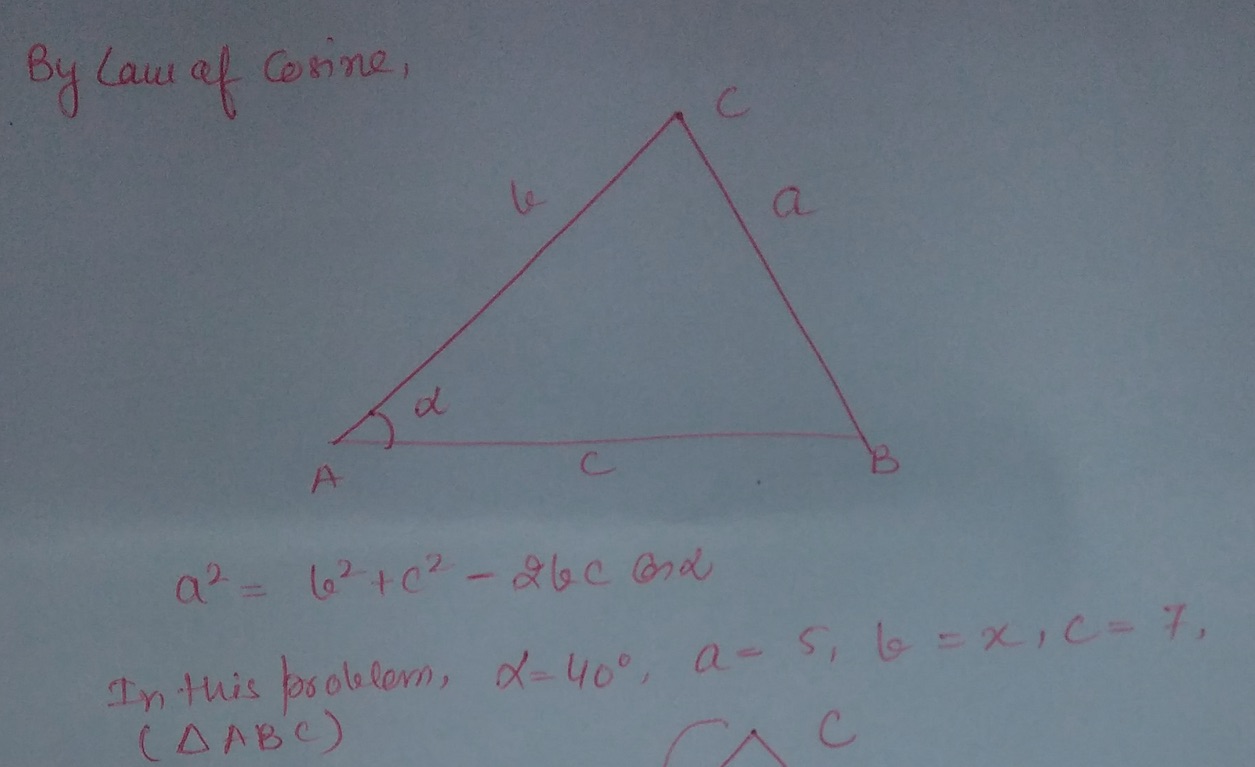 By Law of Cosine,
C
b
a
α
A
C
B
a² = b² + c² - 2bc Cos α
In this problem, α = 40°, a = 5, b = x, c = 7,
(△ABC)
C